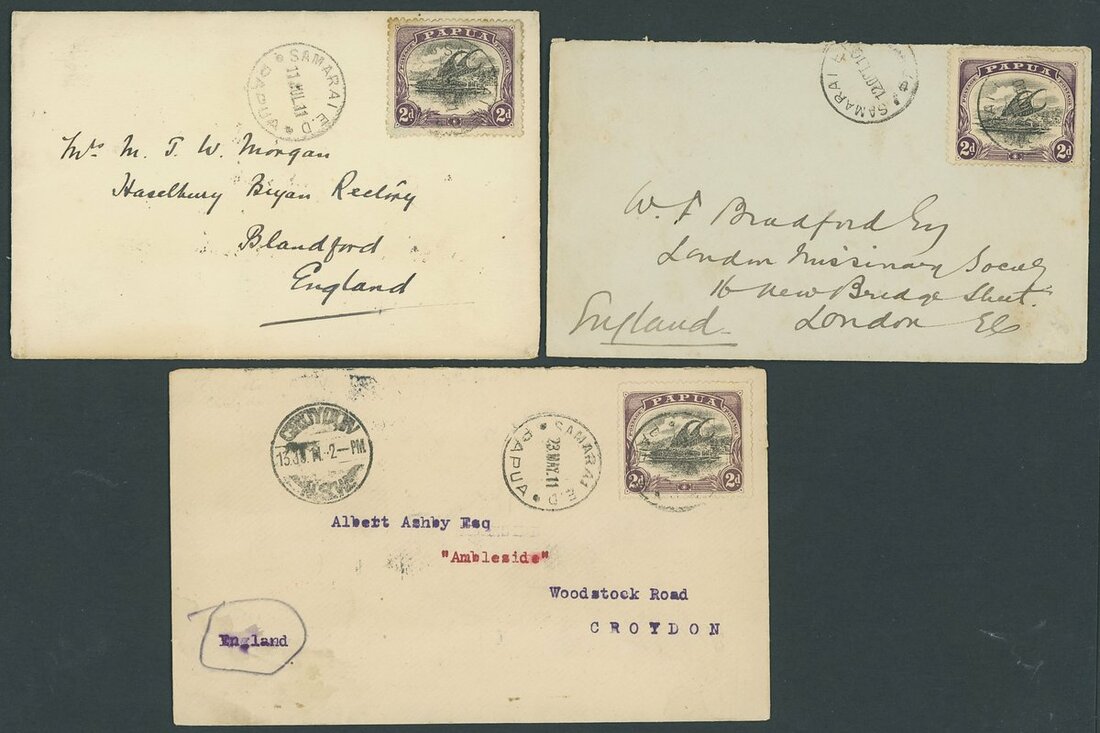 PAPUA
2d 2d
SAMARAI E.D
11 JUL 11
PAPUA
Mrs M. J. W. Morgan
Haselbury Bryan Rectory
Blandford
England
PAPUA
2d 2d
SAMARAI
W. F Bradford Esq
London Missinary Society
16 New Bridge Street
London EC
England
PAPUA
2d 2d
CROYDON
2-PM
SAMARAI E.D
23 MAY. 11
PAPUA
Albert Ashby Esq
"Ambleside"
Woodstock Road
CROYDON
England